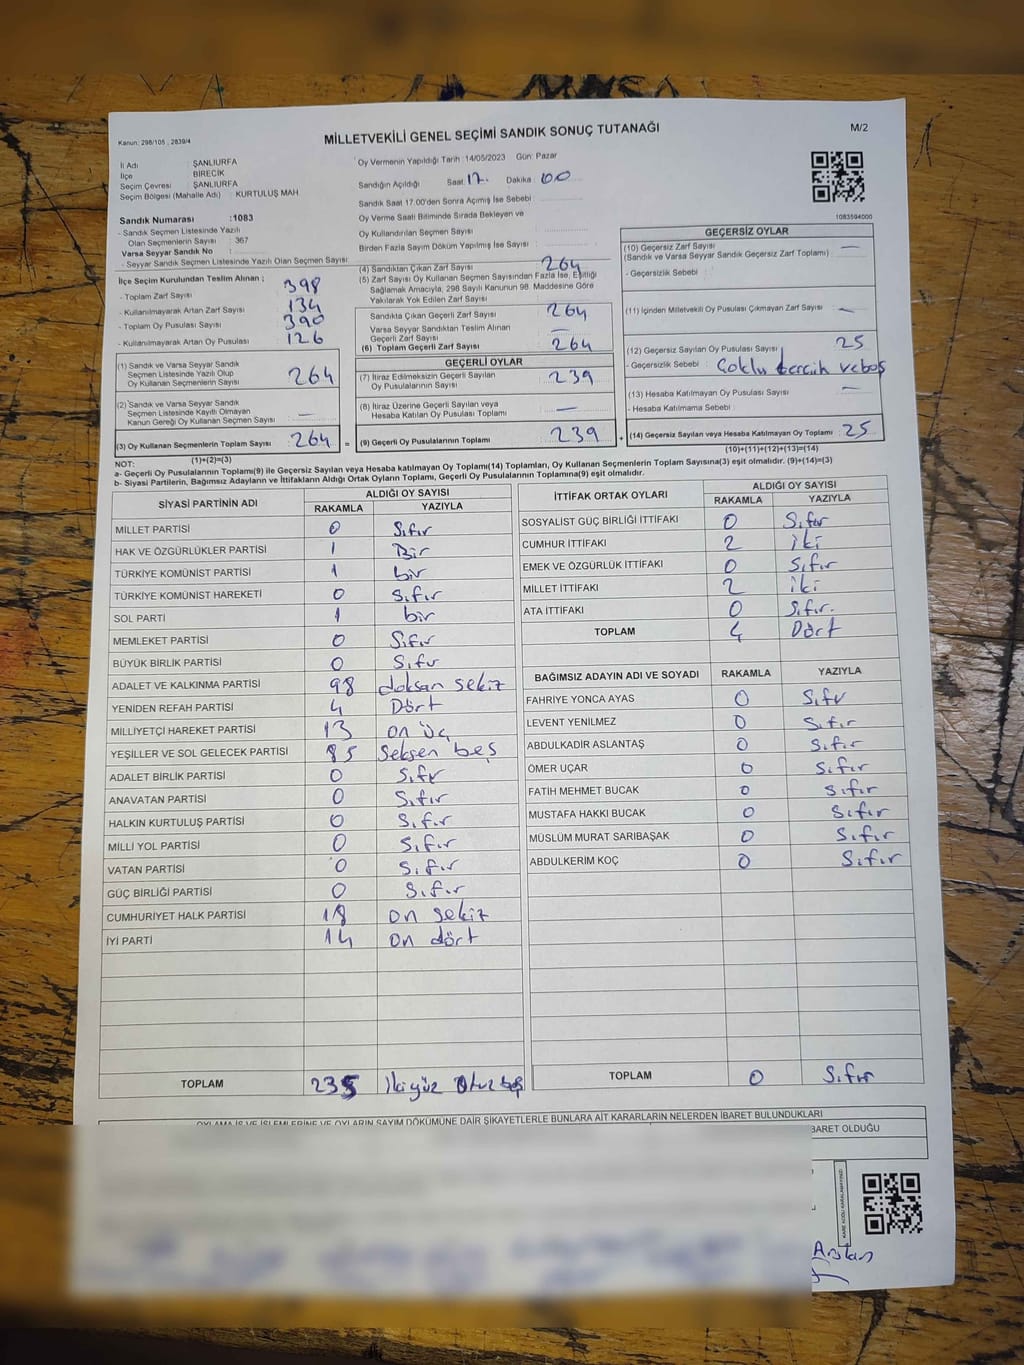 Kanun: 298/105 , 2839/4
MİLLETVEKİLİ GENEL SEÇİMİ SANDIK SONUÇ TUTANAĞI
M/2
İl Adı : ŞANLIURFA
İlçe : BİRECİK
Seçim Çevresi : ŞANLIURFA
Seçim Bölgesi (Mahalle Adı) : KURTULUŞ MAH
Sandık Numarası : 1083
- Sandık Seçmen Listesinde Yazılı
Olan Seçmenlerin Sayısı : 367
Varsa Seyyar Sandık No :
- Seyyar Sandık Seçmen Listesinde Yazılı Olan Seçmen Sayısı
Oy Vermenin Yapıldığı Tarih :14/05/2023 Gün: Pazar
Sandığın Açıldığı Saat: 17. Dakika : 00
Sandık Saat 17.00'den Sonra Açılmış İse Sebebi :
Oy Verme Saati Bitiminde Sırada Bekleyen ve
Oy Kullandırılan Seçmen Sayısı :
Birden Fazla Sayım Döküm Yapılmış İse Sayısı :
1083594000
İlçe Seçim Kurulundan Teslim Alınan ;
- Toplam Zarf Sayısı : 398
- Kullanılmayarak Artan Zarf Sayısı : 134
- Toplam Oy Pusulası Sayısı : 390
- Kullanılmayarak Artan Oy Pusulası : 126
(1) Sandık ve Varsa Seyyar Sandık
Seçmen Listesinde Yazılı Olup
Oy Kullanan Seçmenlerin Sayısı : 264
(2) Sandık ve Varsa Seyyar Sandık
Seçmen Listesinde Kayıtlı Olmayan
Kanun Gereği Oy Kullanan Seçmen Sayısı : —
(3) Oy Kullanan Seçmenlerin Toplam Sayısı : 264 =
(1)+(2)=(3)
(4) Sandıktan Çıkan Zarf Sayısı : 264
(5) Zarf Sayısı Oy Kullanan Seçmen Sayısından Fazla İse, Eşitliği
Sağlamak Amacıyla, 298 Sayılı Kanunun 98. Maddesine Göre
Yakılarak Yok Edilen Zarf Sayısı :
Sandıkta Çıkan Geçerli Zarf Sayısı : 264
Varsa Seyyar Sandıktan Teslim Alınan
Geçerli Zarf Sayısı : —
(6) Toplam Geçerli Zarf Sayısı : 264
GEÇERLİ OYLAR
(7) İtiraz Edilmeksizin Geçerli Sayılan
Oy Pusulalarının Sayısı : 239
(8) İtiraz Üzerine Geçerli Sayılan veya
Hesaba Katılan Oy Pusulası Toplamı : —
(9) Geçerli Oy Pusulalarının Toplamı : 239 +
GEÇERSİZ OYLAR
(10) Geçersiz Zarf Sayısı : —
(Sandık ve Varsa Seyyar Sandık Geçersiz Zarf Toplamı)
- Geçersizlik Sebebi :
(11) İçinden Milletvekili Oy Pusulası Çıkmayan Zarf Sayısı : —
(12) Geçersiz Sayılan Oy Pusulası Sayısı : 25
- Geçersizlik Sebebi : Çoklu tercih ve boş
(13) Hesaba Katılmayan Oy Pusulası Sayısı : —
- Hesaba Katılmama Sebebi :
(14) Geçersiz Sayılan veya Hesaba Katılmayan Oy Toplamı : 25
(10)+(11)+(12)+(13)=(14)
NOT:
a- Geçerli Oy Pusulalarının Toplamı(9) ile Geçersiz Sayılan veya Hesaba katılmayan Oy Toplamı(14) Toplamları, Oy Kullanan Seçmenlerin Toplam Sayısına(3) eşit olmalıdır. (9)+(14)=(3)
b- Siyasi Partilerin, Bağımsız Adayların ve İttifakların Aldığı Ortak Oyların Toplamı, Geçerli Oy Pusulalarının Toplamına(9) eşit olmalıdır.
SİYASİ PARTİNİN ADI ALDIĞI OY SAYISI
RAKAMLA YAZIYLA
MİLLET PARTİSİ 0 Sıfır
HAK VE ÖZGÜRLÜKLER PARTİSİ 1 Bir
TÜRKİYE KOMÜNİST PARTİSİ 1 bir
TÜRKİYE KOMÜNİST HAREKETİ 0 Sıfır
SOL PARTİ 1 bir
MEMLEKET PARTİSİ 0 Sıfır
BÜYÜK BİRLİK PARTİSİ 0 Sıfır
ADALET VE KALKINMA PARTİSİ 98 doksan sekiz
YENİDEN REFAH PARTİSİ 4 Dört
MİLLİYETÇİ HAREKET PARTİSİ 13 on üç
YEŞİLLER VE SOL GELECEK PARTİSİ 85 Seksen beş
ADALET BİRLİK PARTİSİ 0 Sıfır
ANAVATAN PARTİSİ 0 Sıfır
HALKIN KURTULUŞ PARTİSİ 0 Sıfır
MİLLİ YOL PARTİSİ 0 Sıfır
VATAN PARTİSİ 0 Sıfır
GÜÇ BİRLİĞİ PARTİSİ 0 Sıfır
CUMHURİYET HALK PARTİSİ 18 on sekiz
İYİ PARTİ 14 on dört
TOPLAM 235 İkiyüz Otuz beş
İTTİFAK ORTAK OYLARI ALDIĞI OY SAYISI
RAKAMLA YAZIYLA
SOSYALİST GÜÇ BİRLİĞİ İTTİFAKI 0 Sıfır
CUMHUR İTTİFAKI 2 iki
EMEK VE ÖZGÜRLÜK İTTİFAKI 0 Sıfır
MİLLET İTTİFAKI 2 iki
ATA İTTİFAKI 0 Sıfır.
TOPLAM 4 Dört
BAĞIMSIZ ADAYIN ADI VE SOYADI RAKAMLA YAZIYLA
FAHRİYE YONCA AYAS 0 Sıfır
LEVENT YENİLMEZ 0 Sıfır
ABDULKADİR ASLANTAŞ 0 Sıfır
ÖMER UÇAR 0 Sıfır
FATİH MEHMET BUCAK 0 Sıfır
MUSTAFA HAKKI BUCAK 0 Sıfır
MÜSLÜM MURAT SARIBAŞAK 0 Sıfır
ABDULKERİM KOÇ 0 Sıfır
TOPLAM 0 Sıfır
OYLAMA İŞ VE İŞLEMLERİNE VE OYLARIN SAYIM DÖKÜMÜNE DAİR ŞİKAYETLERLE BUNLARA AİT KARARLARIN NELERDEN İBARET BULUNDUKLARI
BARET OLDUĞU
Arslan